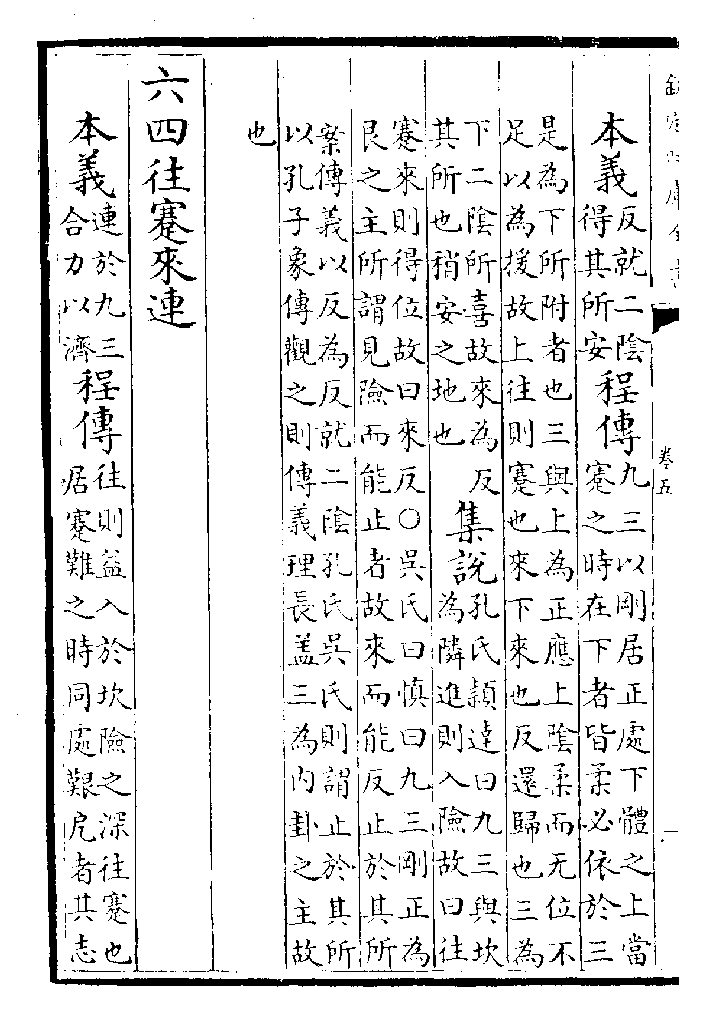 欽定四庫全書
卷五
本義反就二陰得其所安程傳九三以剛居正處下體之上當蹇之時在下者皆柔必依於三
是為下所附者也三與上為正應上陰柔而无位不
足以為援故上往則蹇也來下來也反還歸也三為
下二陰所喜故來為反其所也稍安之地也集說孔氏穎達曰九三與坎為隣進則入險故曰往
蹇來則得位故曰來反○吳氏曰慎曰九三剛正為
艮之主所謂見險而能止者故來而能反止於其所
案傳義以反為反就二陰孔氏吳氏則謂止於其所
以孔子象傳觀之則傳義理長盖三為内卦之主故
也
六四往蹇來連
本義連於九三合力以濟程傳往則益入於坎險之深往蹇也居蹇難之時同處艱戹者其志